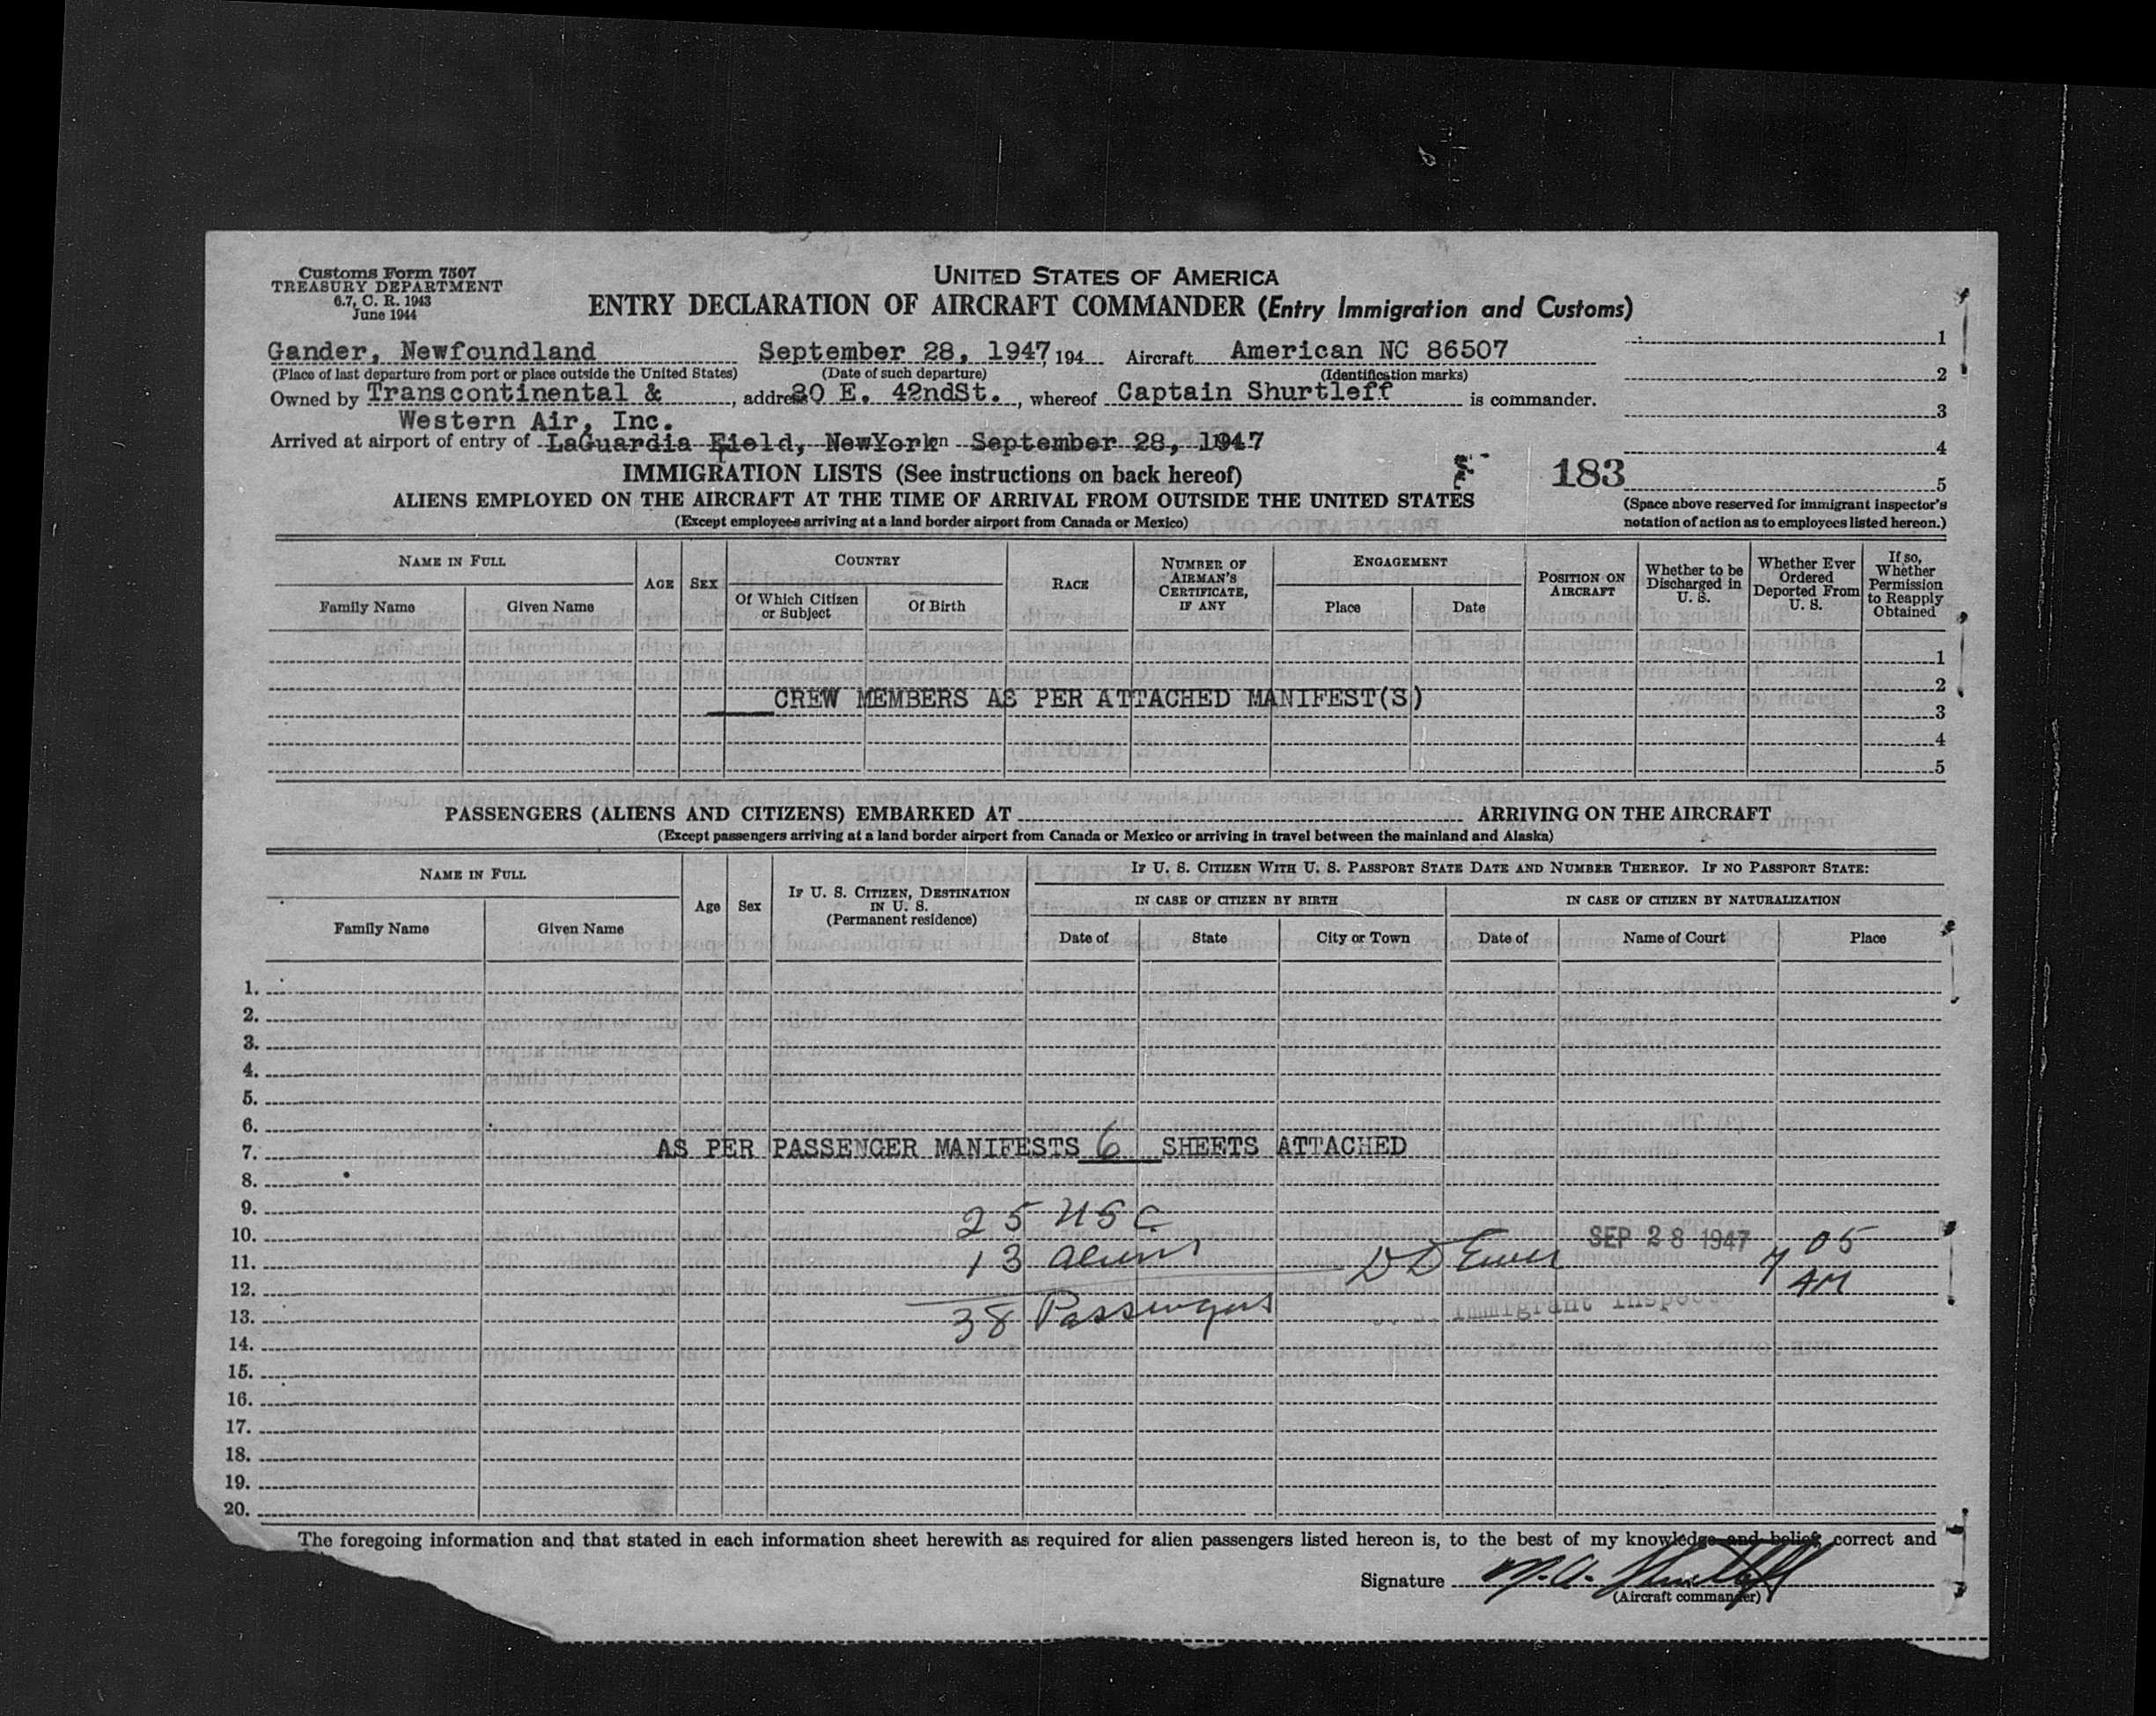 Customs Form 7507
TREASURY DEPARTMENT
6.7, C. R. 1943
June 1944
UNITED STATES OF AMERICA
ENTRY DECLARATION OF AIRCRAFT COMMANDER (Entry Immigration and Customs)
Gander, Newfoundland September 28, 1947, 194 Aircraft American NC 86507
(Place of last departure from port or place outside the United States) (Date of such departure) (Identification marks)
Owned by Transcontinental & , address 80 E. 42ndSt. , whereof Captain Shurtleff is commander.
Western Air, Inc.
Arrived at airport of entry of LaGuardia Field, NewYork on September 28, 1947
1
2
3
4
5
IMMIGRATION LISTS (See instructions on back hereof)
183
ALIENS EMPLOYED ON THE AIRCRAFT AT THE TIME OF ARRIVAL FROM OUTSIDE THE UNITED STATES
(Except employees arriving at a land border airport from Canada or Mexico)
(Space above reserved for immigrant inspector's
notation of action as to employees listed hereon.)
NAME IN FULL
Family Name
Given Name
AGE
SEX
COUNTRY
Of Which Citizen
or Subject
Of Birth
RACE
NUMBER OF
AIRMAN'S
CERTIFICATE,
IF ANY
ENGAGEMENT
Place
Date
POSITION ON
AIRCRAFT
Whether to be
Discharged in
U. S.
Whether Ever
Ordered
Deported From
U. S.
If so,
Whether
Permission
to Reapply
Obtained
1
2
CREW MEMBERS AS PER ATTACHED MANIFEST(S)
3
4
5
PASSENGERS (ALIENS AND CITIZENS) EMBARKED AT ARRIVING ON THE AIRCRAFT
(Except passengers arriving at a land border airport from Canada or Mexico or arriving in travel between the mainland and Alaska)
NAME IN FULL
Family Name
Given Name
Age
Sex
IF U. S. CITIZEN, DESTINATION
IN U. S.
(Permanent residence)
IF U. S. CITIZEN WITH U. S. PASSPORT STATE DATE AND NUMBER THEREOF. IF NO PASSPORT STATE:
IN CASE OF CITIZEN BY BIRTH
Date of
State
City or Town
IN CASE OF CITIZEN BY NATURALIZATION
Date of
Name of Court
Place
1.
2.
3.
4.
5.
6.
7. AS PER PASSENGER MANIFESTS 6 SHEETS ATTACHED
8.
9.
25 USC
10. SEP 28 1947 7 05
11. 13 aliens
12. AM
13. 38 Passengers Immigrant Inspector
14.
15.
16.
17.
18.
19.
20.
The foregoing information and that stated in each information sheet herewith as required for alien passengers listed hereon is, to the best of my knowledge and belief, correct and
Signature M.A. Shurtleff
(Aircraft commander)